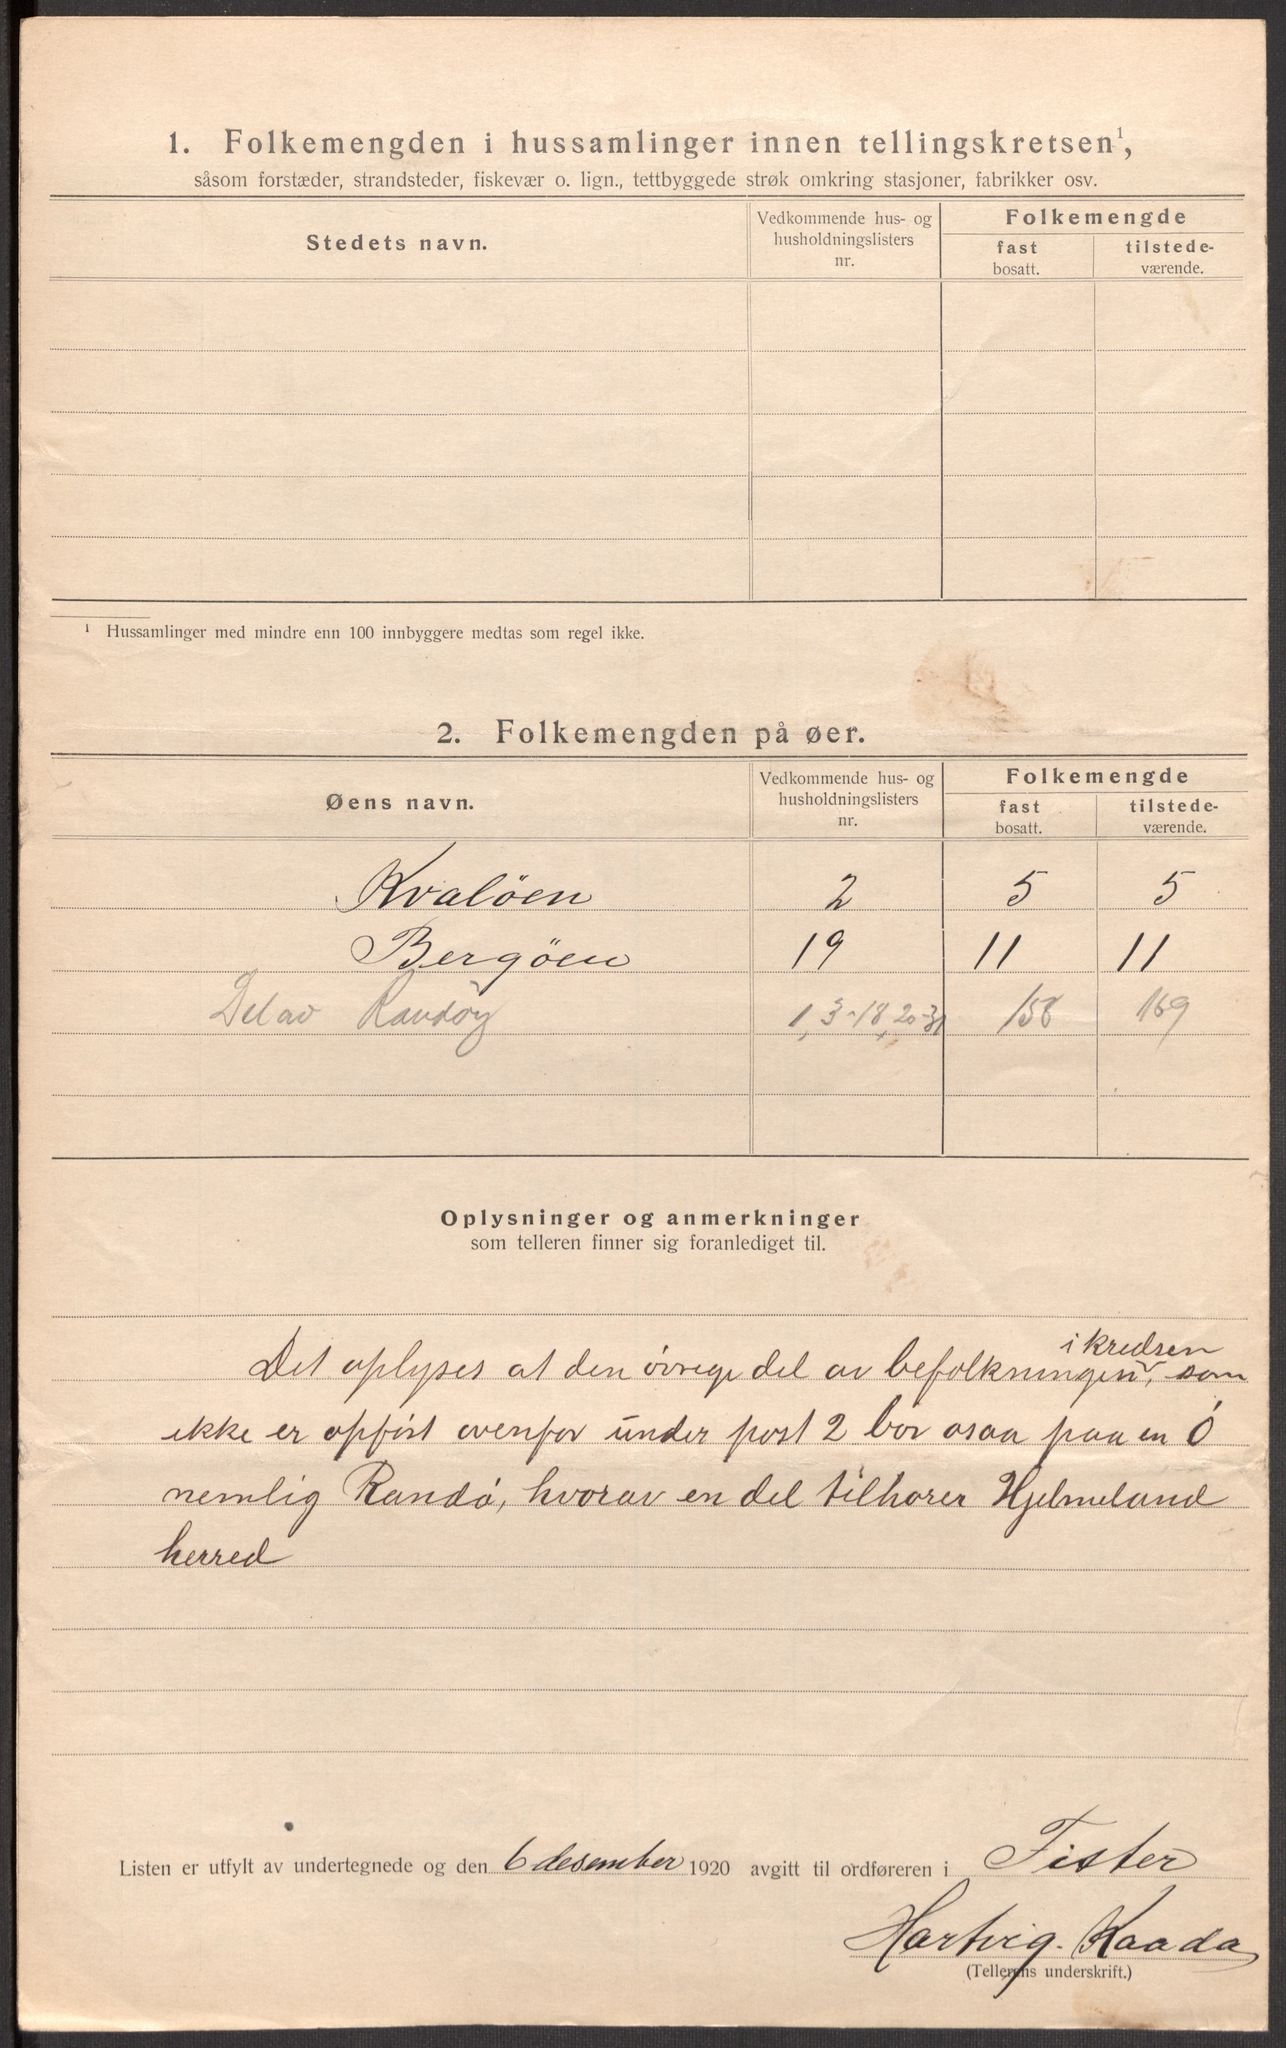 1. Folkemengden i hussamlinger innen tellingskretsen¹,
såsom forstæder, strandsteder, fiskevær o. lign., tettbyggede strøk omkring stasjoner, fabrikker osv.
Stedets navn.
Vedkommende hus- og
husholdningslisters
nr.
Folkemengde
fast
bosatt.
tilstede-
værende.
¹ Hussamlinger med mindre enn 100 innbyggere medtas som regel ikke.
2. Folkemengden på øer.
Øens navn.
Vedkommende hus- og
husholdningslisters
nr.
Folkemengde
fast
bosatt.
tilstede-
værende.
Kvaløen 2 5 5
Bergøen 19 11 11
Del av Randøy 1, 3-18, 20-31 158 169
Oplysninger og anmerkninger
som telleren finner sig foranlediget til.
i kredsen
Det oplyses at den øvrige del av befolkningen, som
ikke er opført ovenfor under post 2 bor osaa paa en Ö
nemlig Randö, hvorav en del tilhører Hjelmeland
herred
Listen er utfylt av undertegnede og den 6 desember 1920 avgitt til ordføreren i Fister
Hartvig. Kaada
(Tellerens underskrift.)